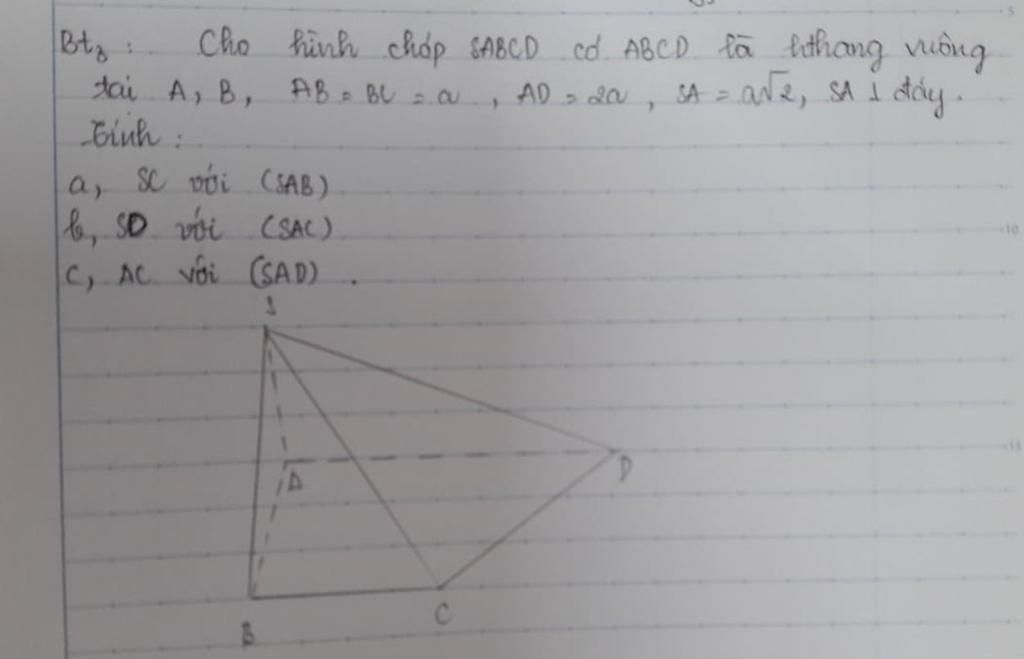 Bt3: Cho hình chóp SABCD có ABCD là hthang vuông
tại A, B, AB = BC = a, AD = 2a, SA = a√2, SA ⊥ đáy.
Tính:
a, SC với (SAB)
b, SD với (SAC)
c, AC với (SAD).
S
A
D
B
C